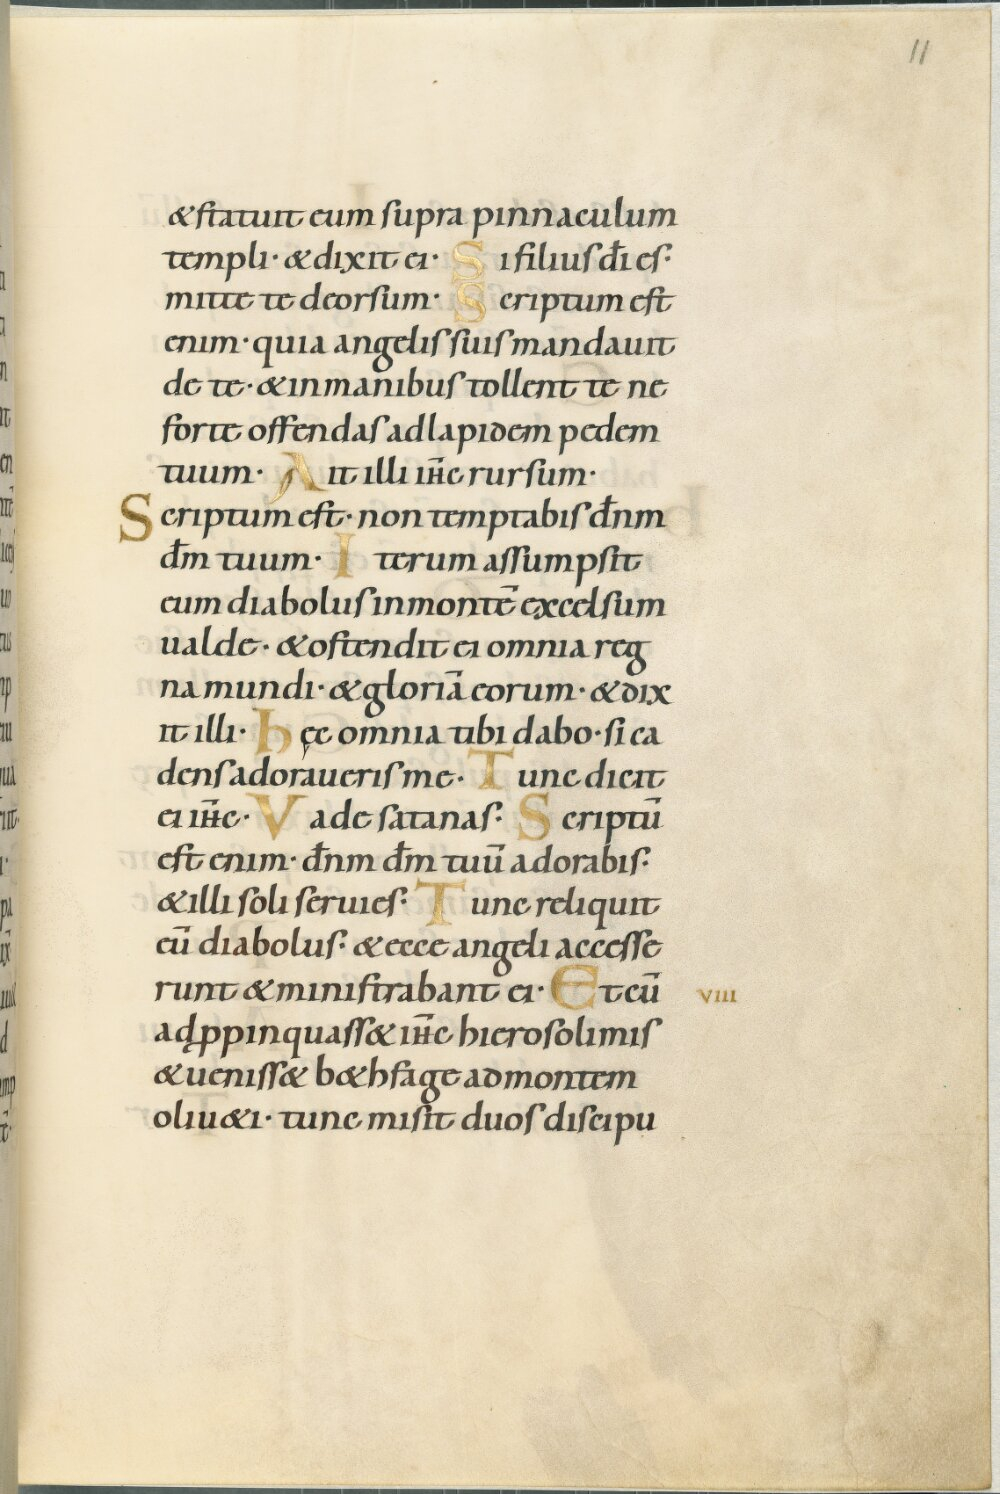 11
&statuit eum supra pinnaculum
templi· &dixit ei· Si filius d̄i es·
mitte te deorsum· Scriptum est
enim· quia angelis suis mandauit
de te· &inmanibus tollent te ne
forte offendas adlapidem pedem
tuum· Ait illi ih̄c rursum·
Scriptum est· non temptabis d̄nm
d̄m tuum· Iterum assumpsit
eum diabolus inmontē excelsum
ualde· &ostendit ei omnia reg
na mundi· &gloriā eorum· &dix
it illi· hęc omnia tibi dabo· si ca
dens adoraueris me· Tunc dicit
ei ih̄c· Vade satanas· Scriptū
est enim· d̄nm d̄m tuū adorabis·
&illi soli seruies· Tunc reliquit
eū diabolus· &ecce angeli accesse
runt &ministrabant ei· Et cū viii
adꝓpinquass& ih̄c hierosolimis
&ueniss& b&hfage admontem
oliu&i· tunc misit duos discipu